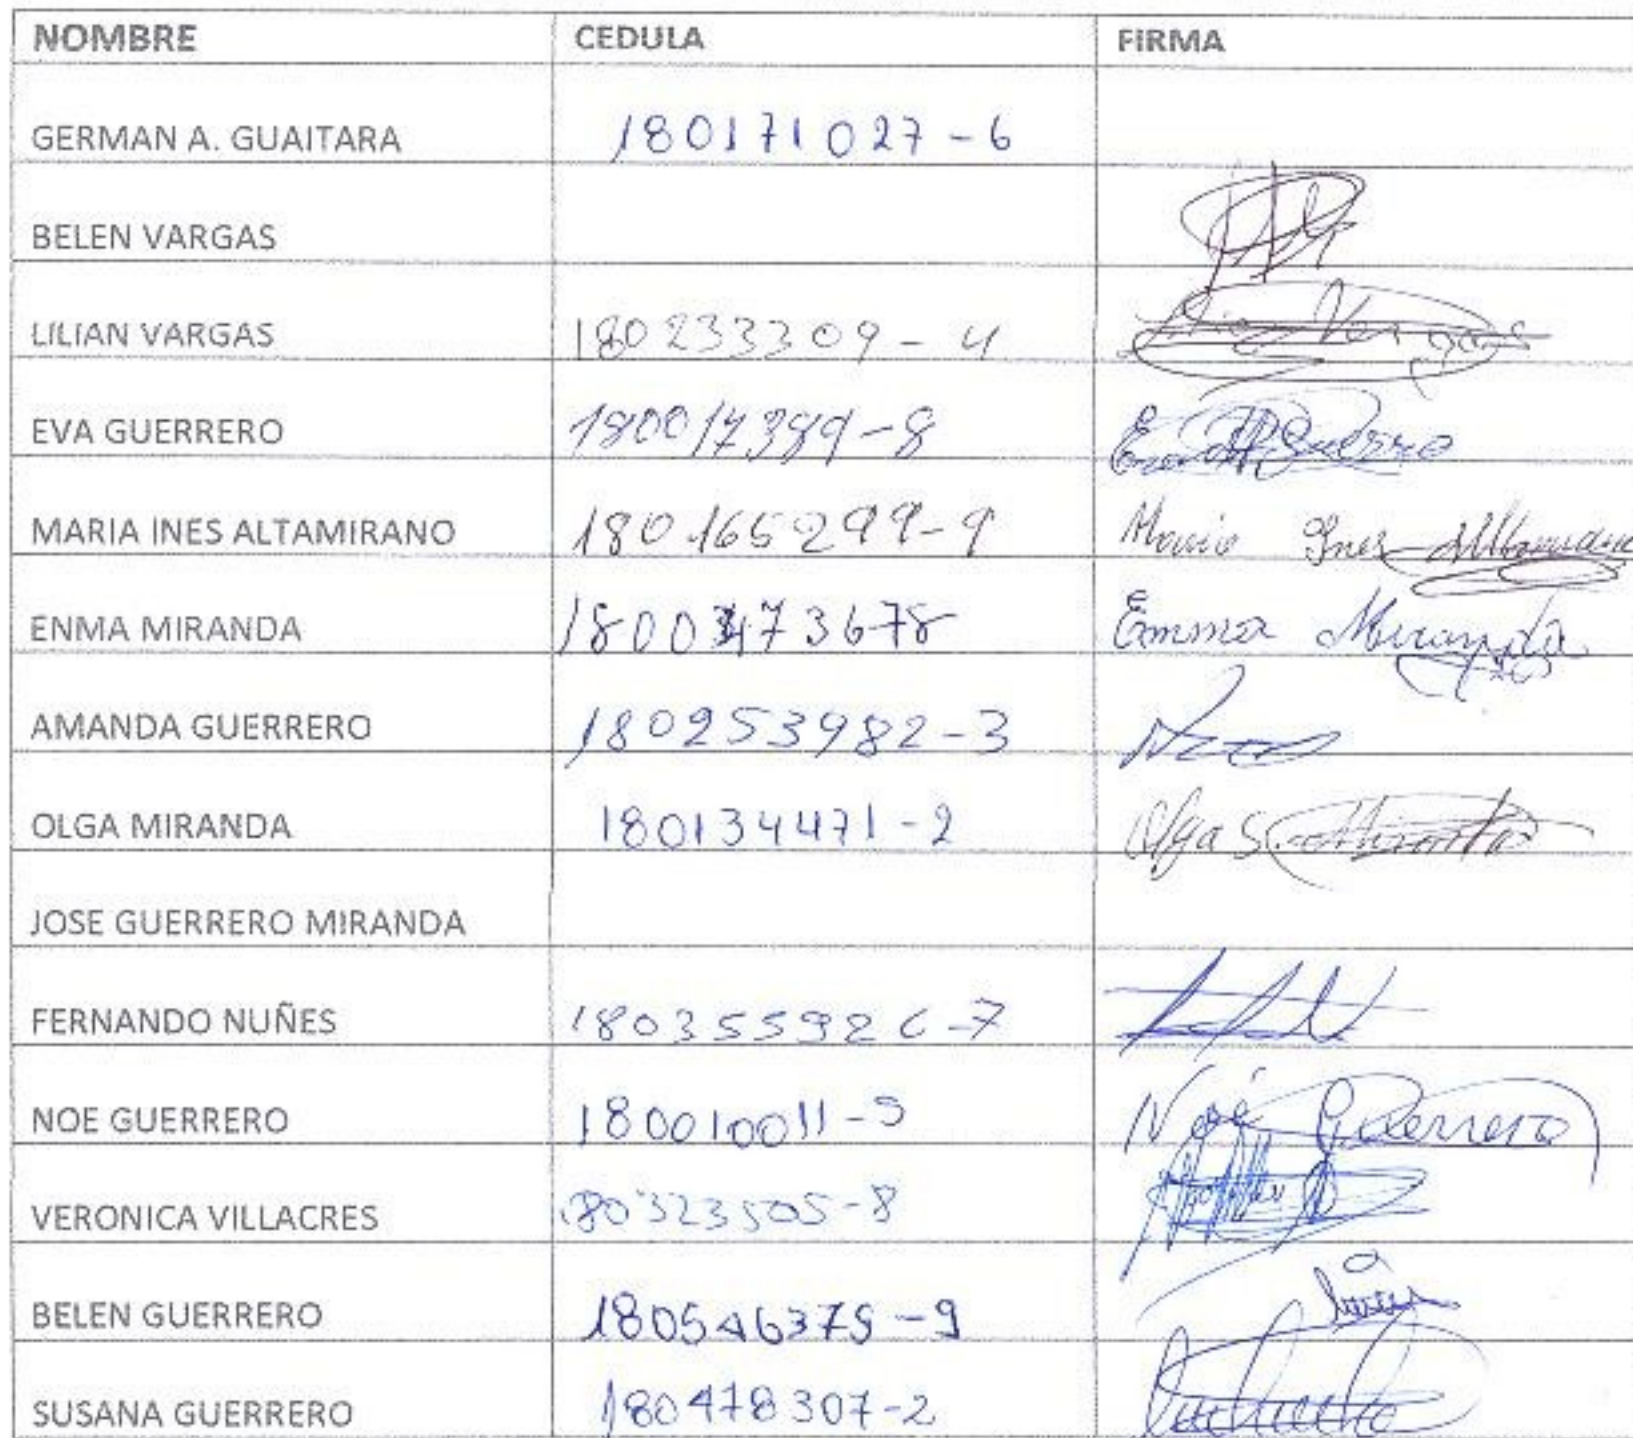 NOMBRE CEDULA FIRMA
GERMAN A. GUAITARA 180171027-6
BELEN VARGAS
LILIAN VARGAS 180233309-4 Vargas
EVA GUERRERO 180017389-8 Eva Guerrero
MARIA INES ALTAMIRANO 180165299-9 Maria Ines Altamirano
ENMA MIRANDA 1800473678 Emma Miranda
AMANDA GUERRERO 180253982-3
OLGA MIRANDA 180134471-2 Olga S. Miranda
JOSE GUERRERO MIRANDA
FERNANDO NUÑES 180355926-7
NOE GUERRERO 180010011-5 Noé Guerrero
VERONICA VILLACRES 180323505-8
BELEN GUERRERO 180546375-9
SUSANA GUERRERO 180478307-2